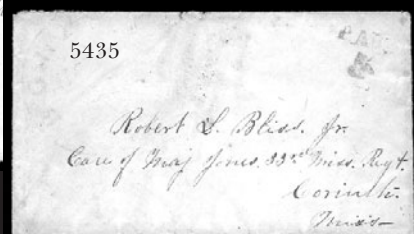 5435
PAID
5
Robert S. Bliss Jr.
Care of Maj Jones. 33rd Miss. Regt.
Corinth.
Miss—